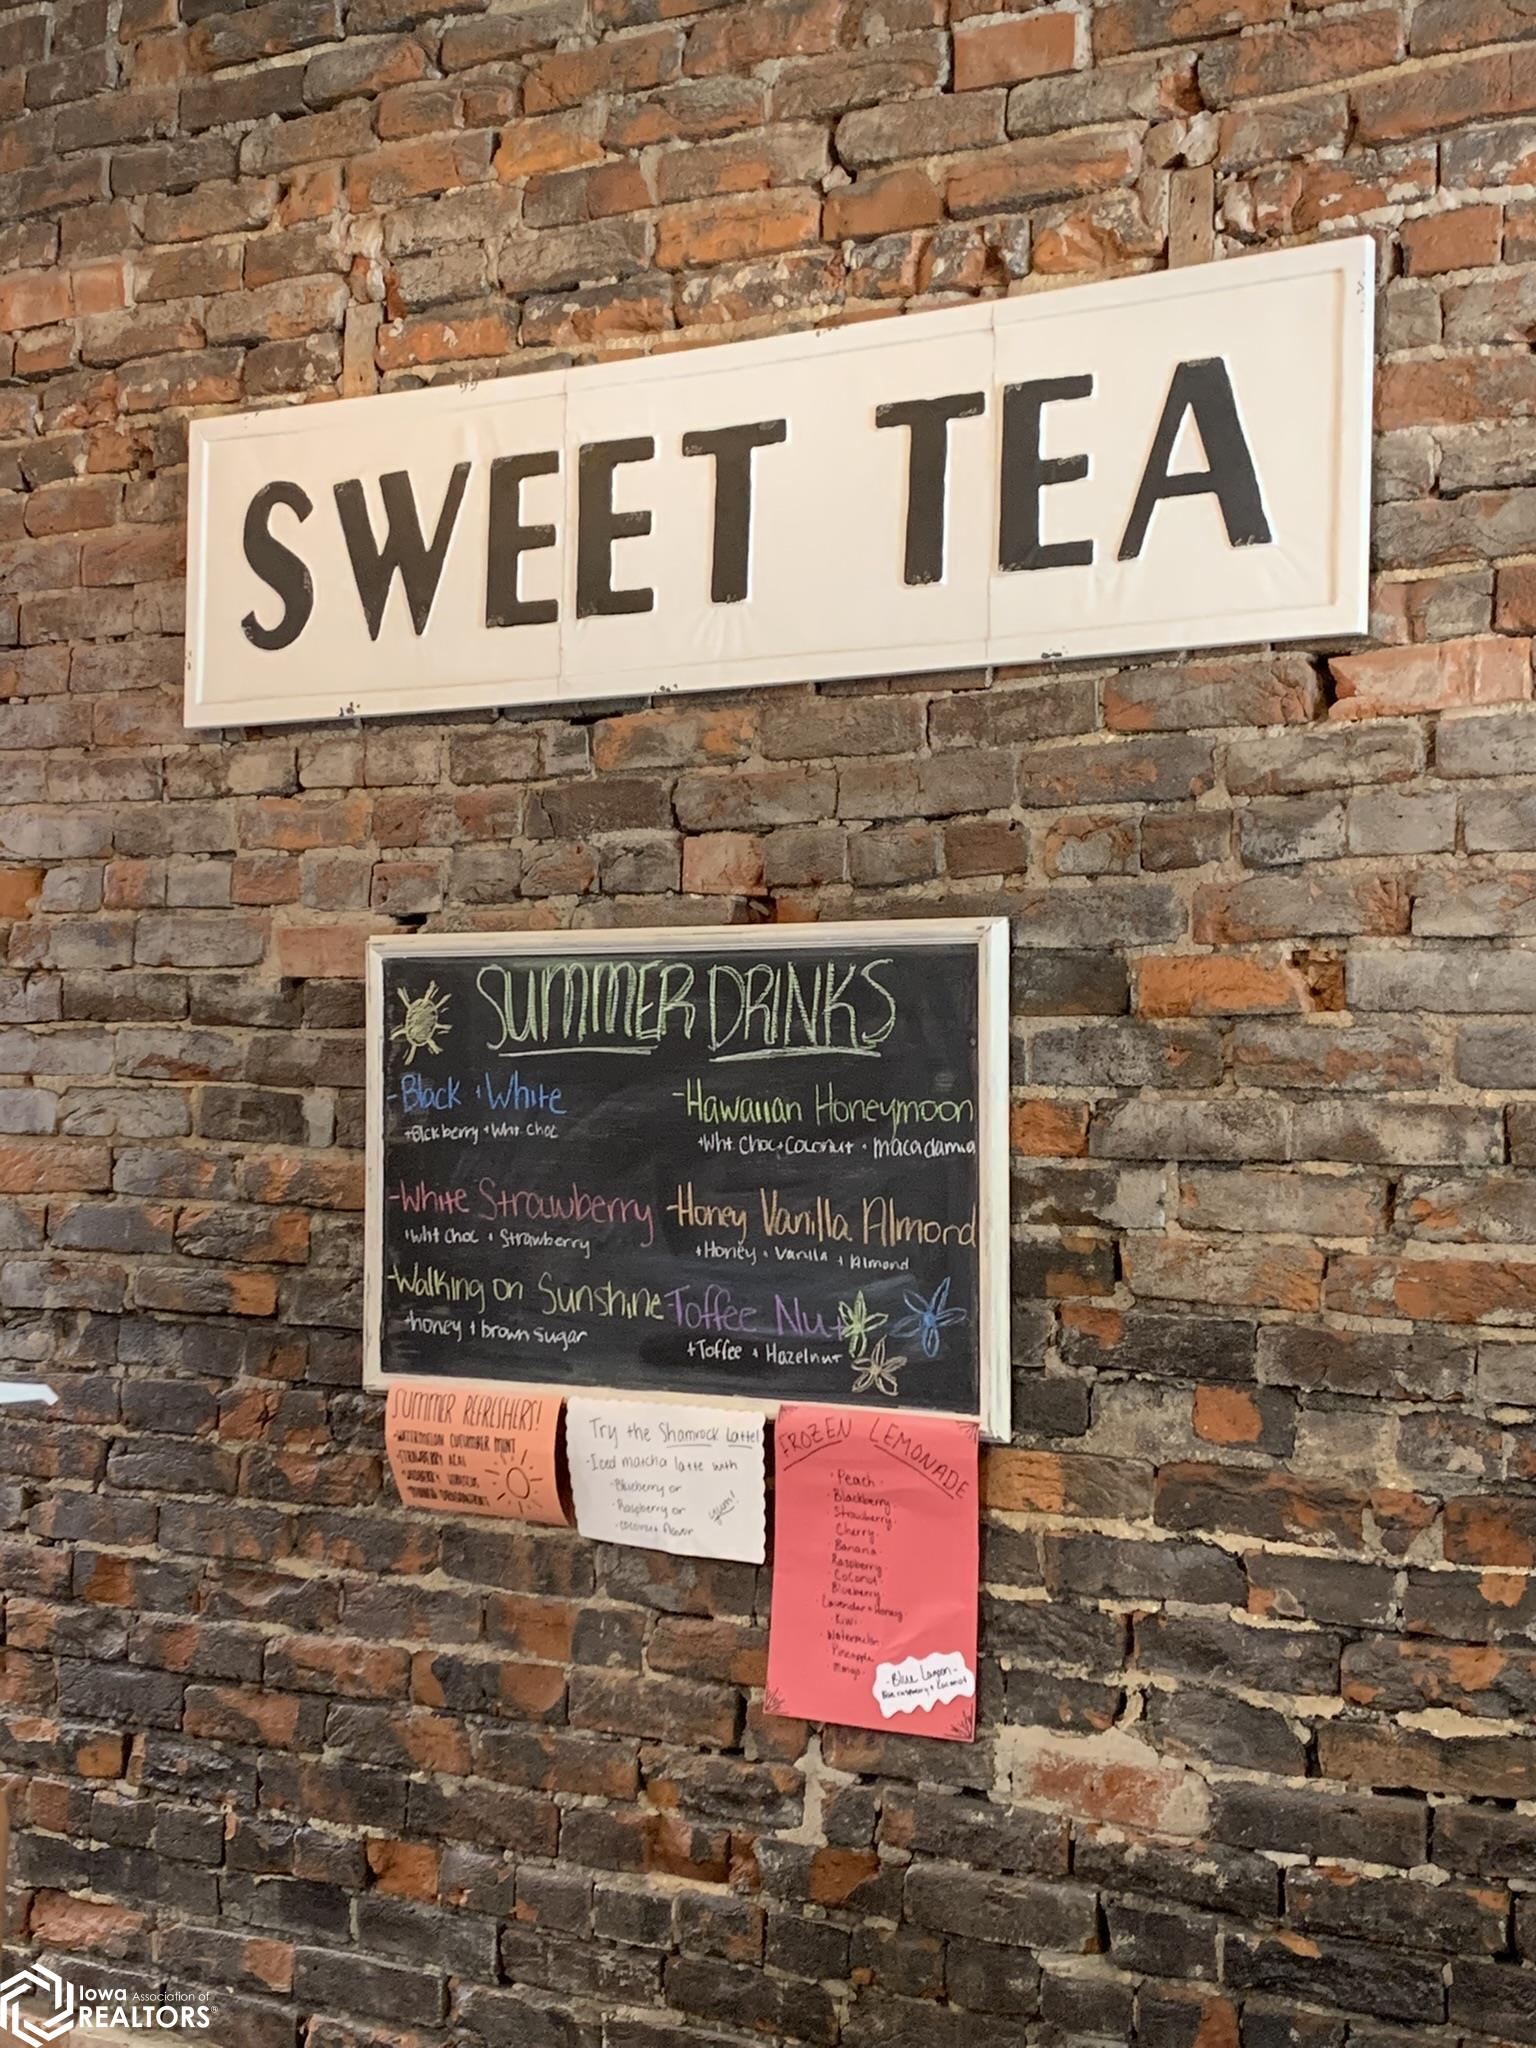 SWEET TEA
SUMMER DRINKS
-Black + White
+Blckberry + Wht. Choc
-White Strawberry
+Wht Choc + Strawberry
-Walking on Sunshine
+honey + brown sugar
-Hawaiian Honeymoon
+Wht. Choc + Coconut + macadamia
-Honey Vanilla Almond
+Honey + Vanilla + Almond
-Toffee Nut
+Toffee + Hazelnut
SUMMER REFRESHERS!
-WATERMELON CUCUMBER MINT
-STRAWBERRY ACAI
Try the Shamrock Latte!
-Iced matcha latte with
-Blueberry or
-Raspberry or
-coconut flavor
yum!
FROZEN LEMONADE
·Peach·
·Blackberry·
·Strawberry·
·Cherry·
·Banana·
·Raspberry·
·Coconut·
·Blueberry·
·Lavender + Honey·
·Kiwi·
·Watermelon·
·Pineapple·
·Mango·
-Blue Lagoon-
Blue raspberry + Coconut
Iowa Association of
REALTORS®